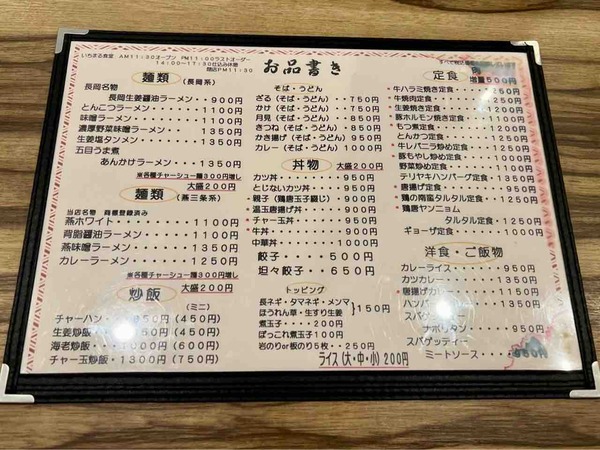 いちまる食堂 AM11:30オープン PM11:00ラストオーダー
14:00〜17:30仕込み休憩
閉店PM11:30
お品書き
麺類 (長岡系)
長岡名物
長岡生姜醤油ラーメン・・900円
とんこつラーメン・・・・1100円
味噌ラーメン・・・・・・1100円
濃厚野菜味噌ラーメン・・1350円
生姜塩タンメン・・・・・1350円
五目うま煮
あんかけラーメン・・・1350円
※各種チャーシュー麺300円増し
大盛200円
麺類 (燕三条系)
当店名物 商標登録済み
燕ホワイト・・・・・・・1100円
背脂醤油ラーメン・・・・1100円
燕味噌ラーメン・・・・・1350円
カレーラーメン・・・・・1250円
※各種チャーシュー麺300円増し
大盛200円
炒飯
(ミニ)
チャーハン・・・850円(450円)
生姜炒飯・・・・850円(450円)
海老炒飯・・・1000円(600円)
チャー玉炒飯・1300円(750円)
そば・うどん
ざる(そば・うどん)・・750円
かけ(そば・うどん)・・750円
月見(そば・うどん)・・850円
きつね(そば・うどん)・・850円
かき揚げ(そば・うどん)・950円
カレー(そば・うどん)・1050円
丼物 大盛200円
カツ丼・・・・・・・・950円
とじないカツ丼・・・・950円
親子(鶏唐玉子綴じ)・・900円
温玉唐揚げ丼・・・・・950円
チャー玉丼・・・・・・950円
牛丼・・・・・・・・・900円
中華丼・・・・・・・1000円
餃子・・・・・500円
坦々餃子・・・650円
トッピング
長ネギ・タマネギ・メンマ
ほうれん草・生すり生姜 150円
煮玉子・・・・・・・200円
ぽっこれ煮玉子・・・100円
岩のりor板のり5枚・・250円
ライス(大・中・小)200円
定食
増量500円
牛ハラミ焼き定食・・・
牛焼肉定食・・・・・・1250円
生姜焼き定食・・・・・
豚ホルモン焼き定食・・
もつ煮定食・・・・・・
とんかつ定食・・・・・
牛レバニラ炒め定食・・
豚もやし炒め定食・・・1000円
野菜炒め定食・・・・・1100円
テリヤキハンバーグ定食・1350円
唐揚げ定食・・・・・・950円
鶏の南蛮タルタル定食・・1250円
鶏唐ヤンニョム
タルタル定食・・1250円
ギョーザ定食・・・・・1000円
洋食・ご飯物
カレーライス・・・・・950円
カツカレー・・・・・・1350円
唐揚げカ
ハンバ
スパゲ
ナポリタン・・・950円
スパゲッティー
ミートソース・・・950円